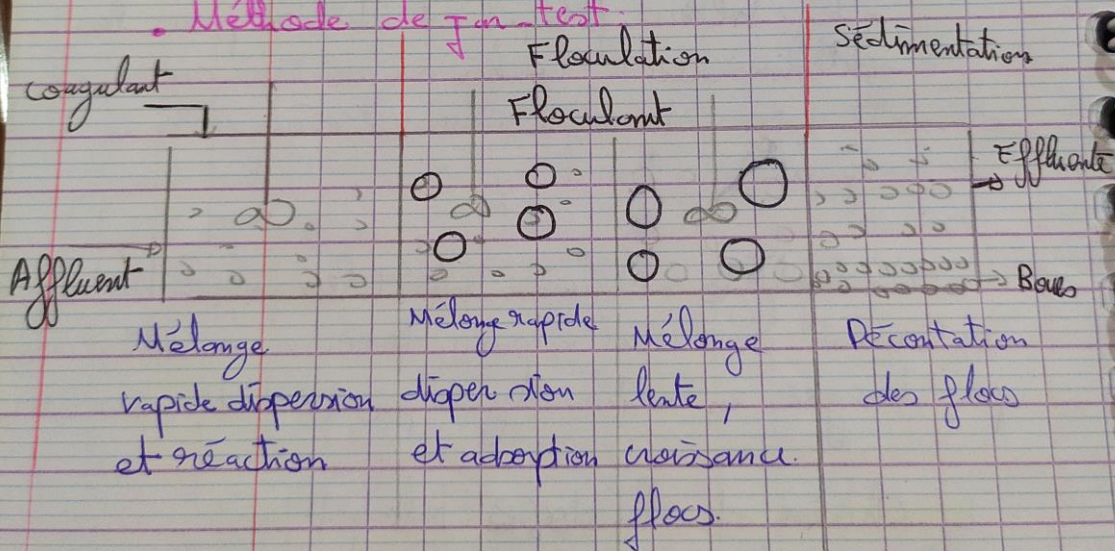 . Méthode de Jar-test.
Floculation
Sédimentation
coagulant
Floculant
Effluente
Affluent
Boues
Mélange
rapide dispersion
et réaction
Mélange rapide
dispersion
et adsorption
Mélange
lente,
croissance
flocs.
Décantation
des flocs